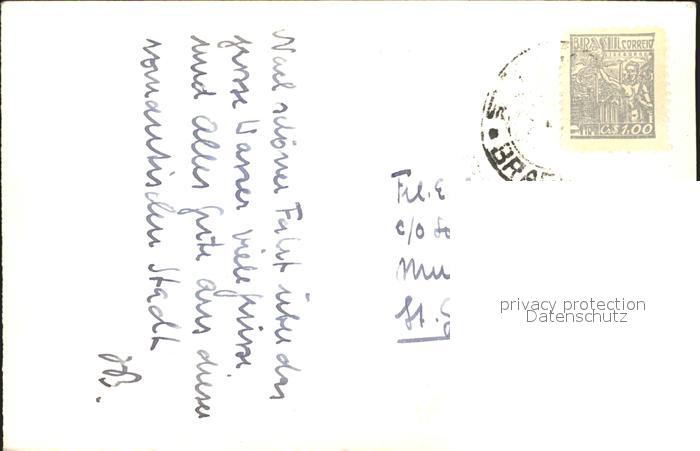 Nach schöner Fahrt über das
grosse Wasser viele Grüsse
und alles Gute aus dieser
romantischen Stadt
BRASIL CORREIO
SIDERURGIA
CR$ 1,00
BRAS
Frl. E
c/o
Mu
St. G
privacy protection
Datenschutz